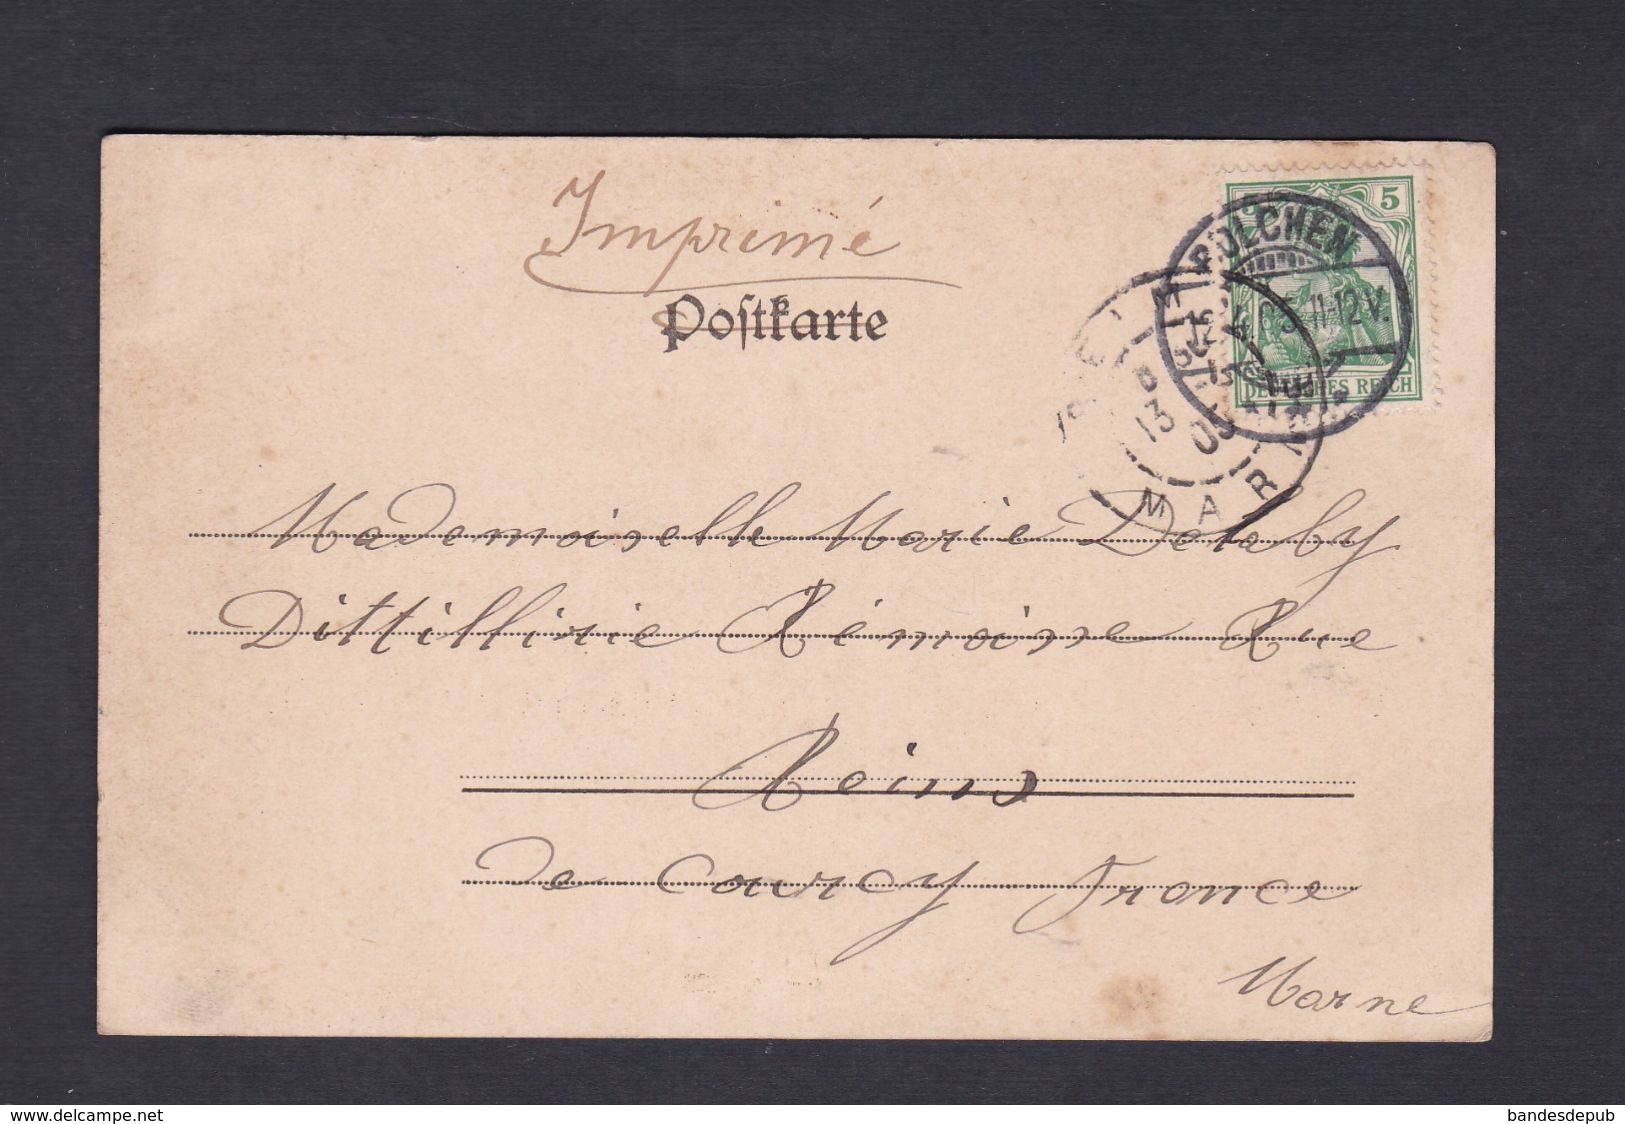 Imprimé
Postkarte
5
BOLCHEN
12.4.05 11-12 V.
DEUTSCHES REICH
13
MARNE
Mademoiselle Marie Delaby
Dittillirie Rémoisse Rue
Reims
de Courcy France
Marne
www.delcampe.net
bandesdepub